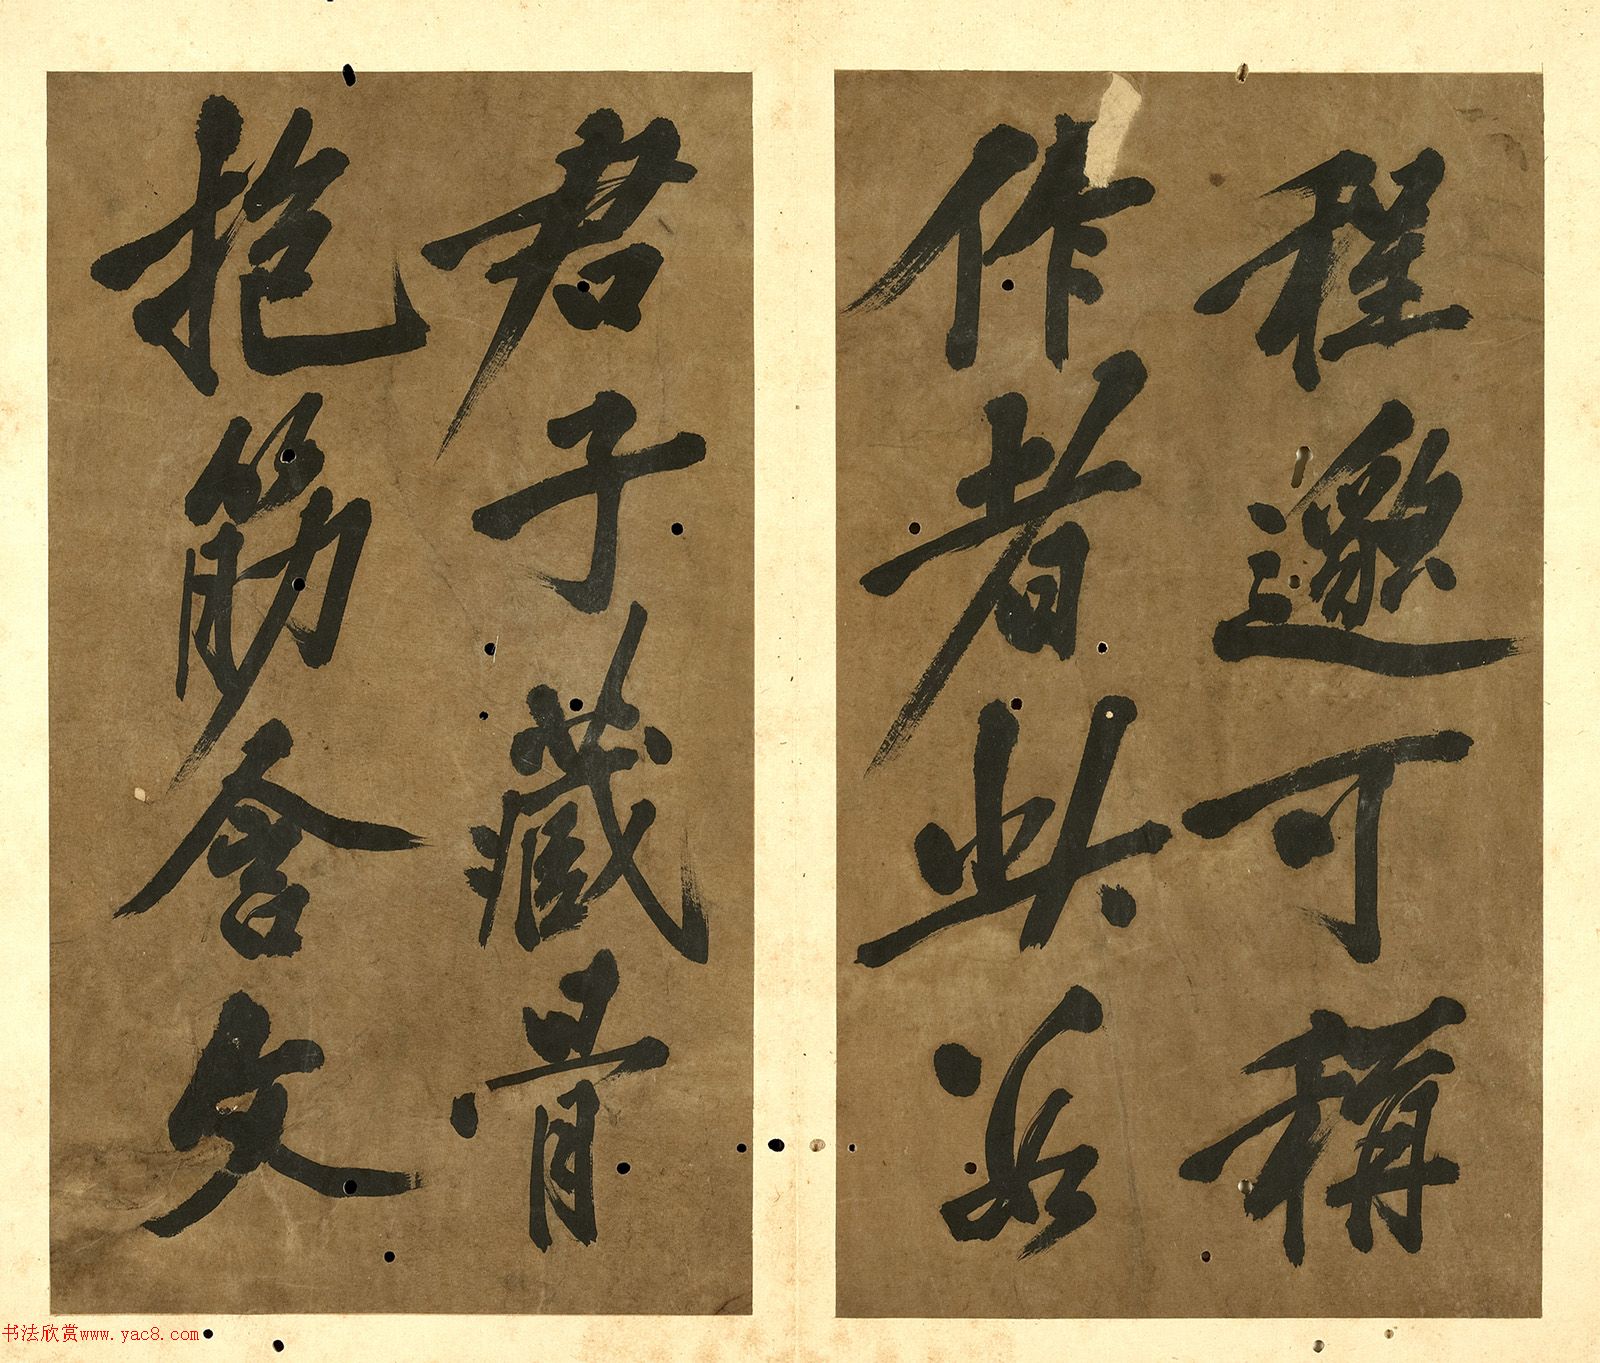 程邈可稱
作者
君子藏骨
抱筋含文
书法欣赏www.yac8.com